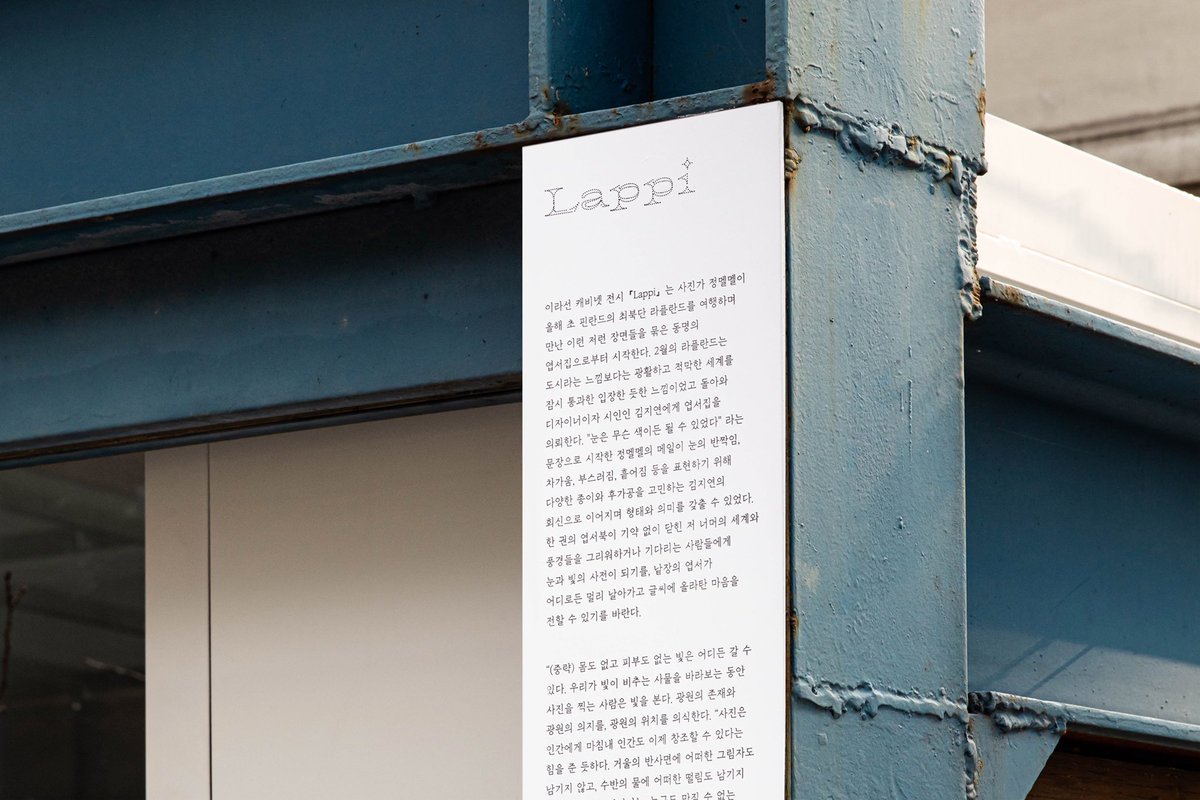 Lappi
이라선 캐비넷 전시 『Lappi』는 사진가 정멜멜이
올해 초 핀란드의 최북단 라플란드를 여행하며
만난 이런 저런 장면들을 묶은 동명의
엽서집으로부터 시작한다. 2월의 라플란드는
도시라는 느낌보다는 광활하고 적막한 세계를
잠시 통과한 입장한 듯한 느낌이었고 돌아와
디자이너이자 시인인 김지연에게 엽서집을
의뢰한다. "눈은 무슨 색이든 될 수 있었다" 라는
문장으로 시작한 정멜멜의 메일이 눈의 반짝임,
차가움, 부스러짐, 흩어짐 등을 표현하기 위해
다양한 종이와 후가공을 고민하는 김지연의
회신으로 이어지며 형태와 의미를 갖출 수 있었다.
한 권의 엽서북이 기약 없이 닫힌 저 너머의 세계와
풍경들을 그리워하거나 기다리는 사람들에게
눈과 빛의 사전이 되기를, 낱장의 엽서가
어디로든 멀리 날아가고 글씨에 올라탄 마음을
전할 수 있기를 바란다.
"(중략) 몸도 없고 피부도 없는 빛은 어디든 갈 수
있다. 우리가 빛이 비추는 사물을 바라보는 동안
사진을 찍는 사람은 빛을 본다. 광원의 존재와
광원의 의지를, 광원의 위치를 의식한다. "사진은
인간에게 마침내 인간도 이제 창조할 수 있다는
힘을 준 듯하다. 거울의 반사면에 어떠한 그림자도
남기지 않고, 수반의 물에 어떠한 떨림도 남기지
누구도 만질 수 없는